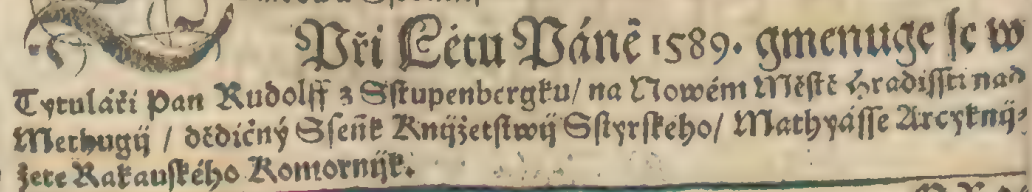 Při Létu Páně 1589. gmenuge se w
Tytuláři Pan Rudolff z Sstupenbergku/ na Nowém Městě Hradissti nad
Methugij / dědičný Ssenk Knijžetstwij Sstyrského/ Mathyásse Arcyknij-
žete Rakauského Komornijk.